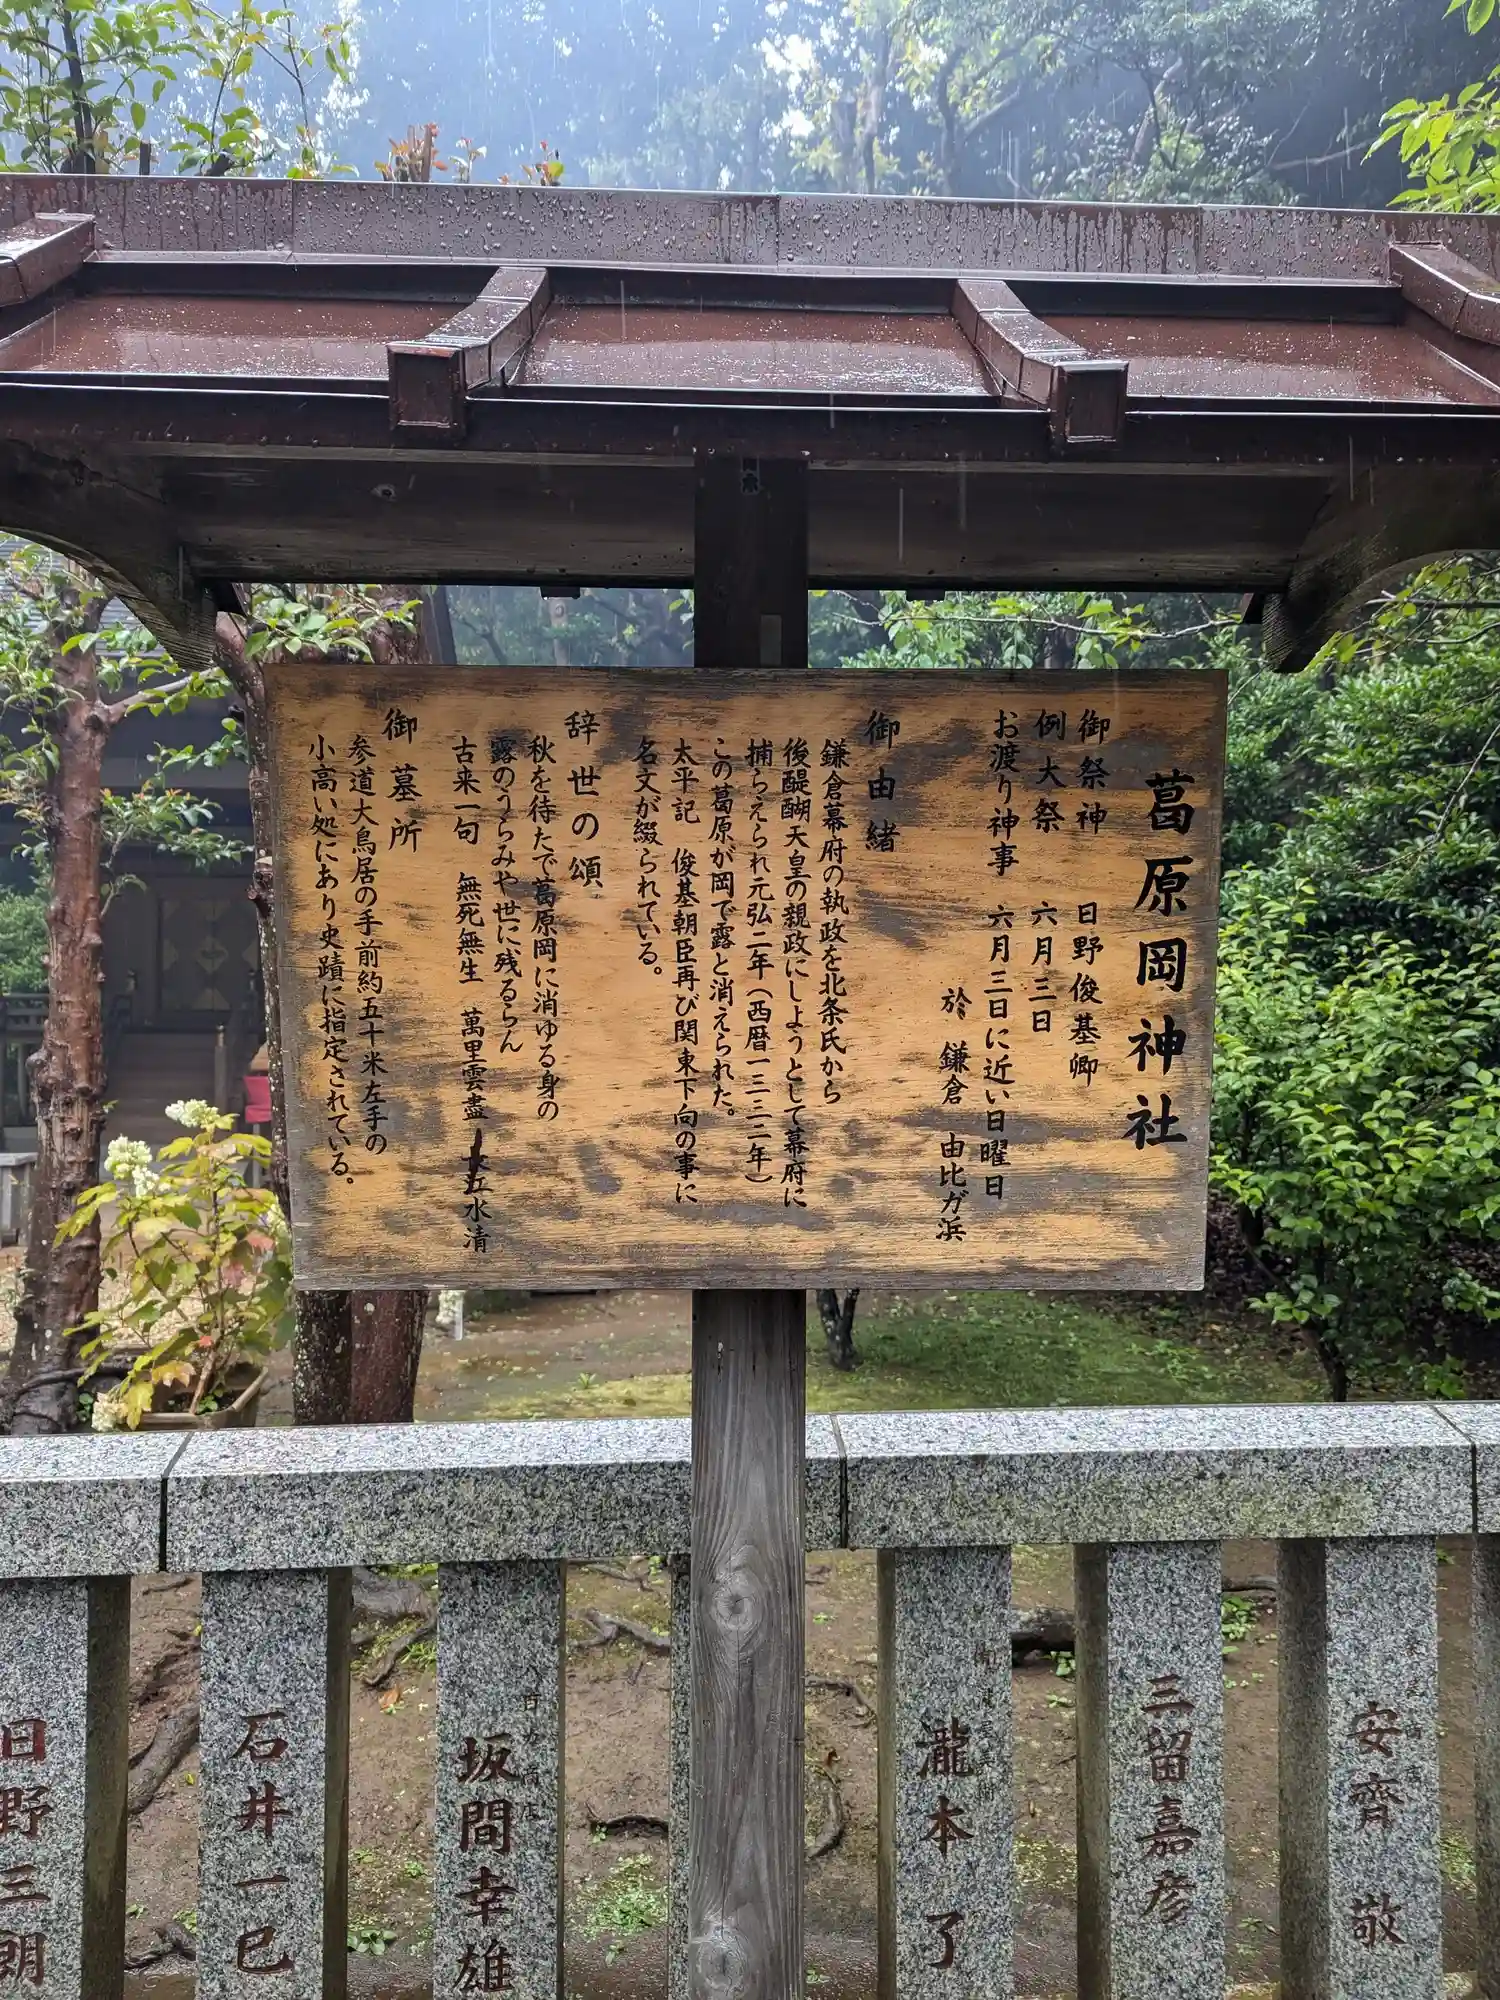 葛原岡神社
御祭神　日野俊基卿
例大祭　六月三日
お渡り神事　六月三日に近い日曜日
於　鎌倉　由比ガ浜
御由緒
鎌倉幕府の執政を北条氏から
後醍醐天皇の親政にしようとして幕府に
捕らえられ元弘二年（西暦一三三二年）
この葛原が岡で露と消えられた。
太平記　俊基朝臣再び関東下向の事に
名文が綴られている。
辞世の頌
秋を待たで葛原岡に消ゆる身の
露のうらみや世に残るらん
古来一句　無死無生　萬里雲盡　水清
御墓所
参道大鳥居の手前約五十米左手の
小高い処にあり史蹟に指定されている。
安齊　敬
三留嘉彦
瀧本了
坂間幸雄
石井一巳
日野三朗